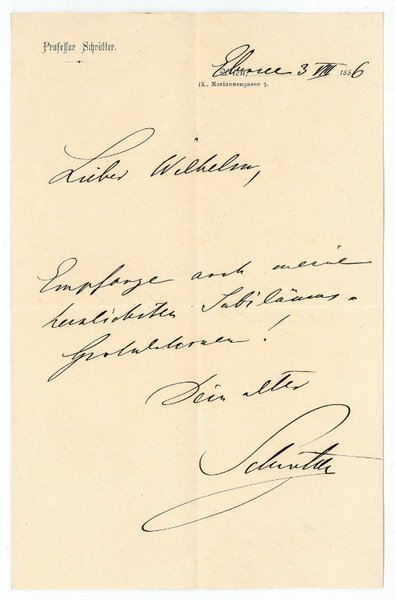 Professor Schrötter.
3 VIII 1886
IX., Mariannengasse 3.
Lieber Wilhelm,
Empfange auch meine
herzlichsten Jubiläums-
Gratulationen!
Dein alter
Schrötter